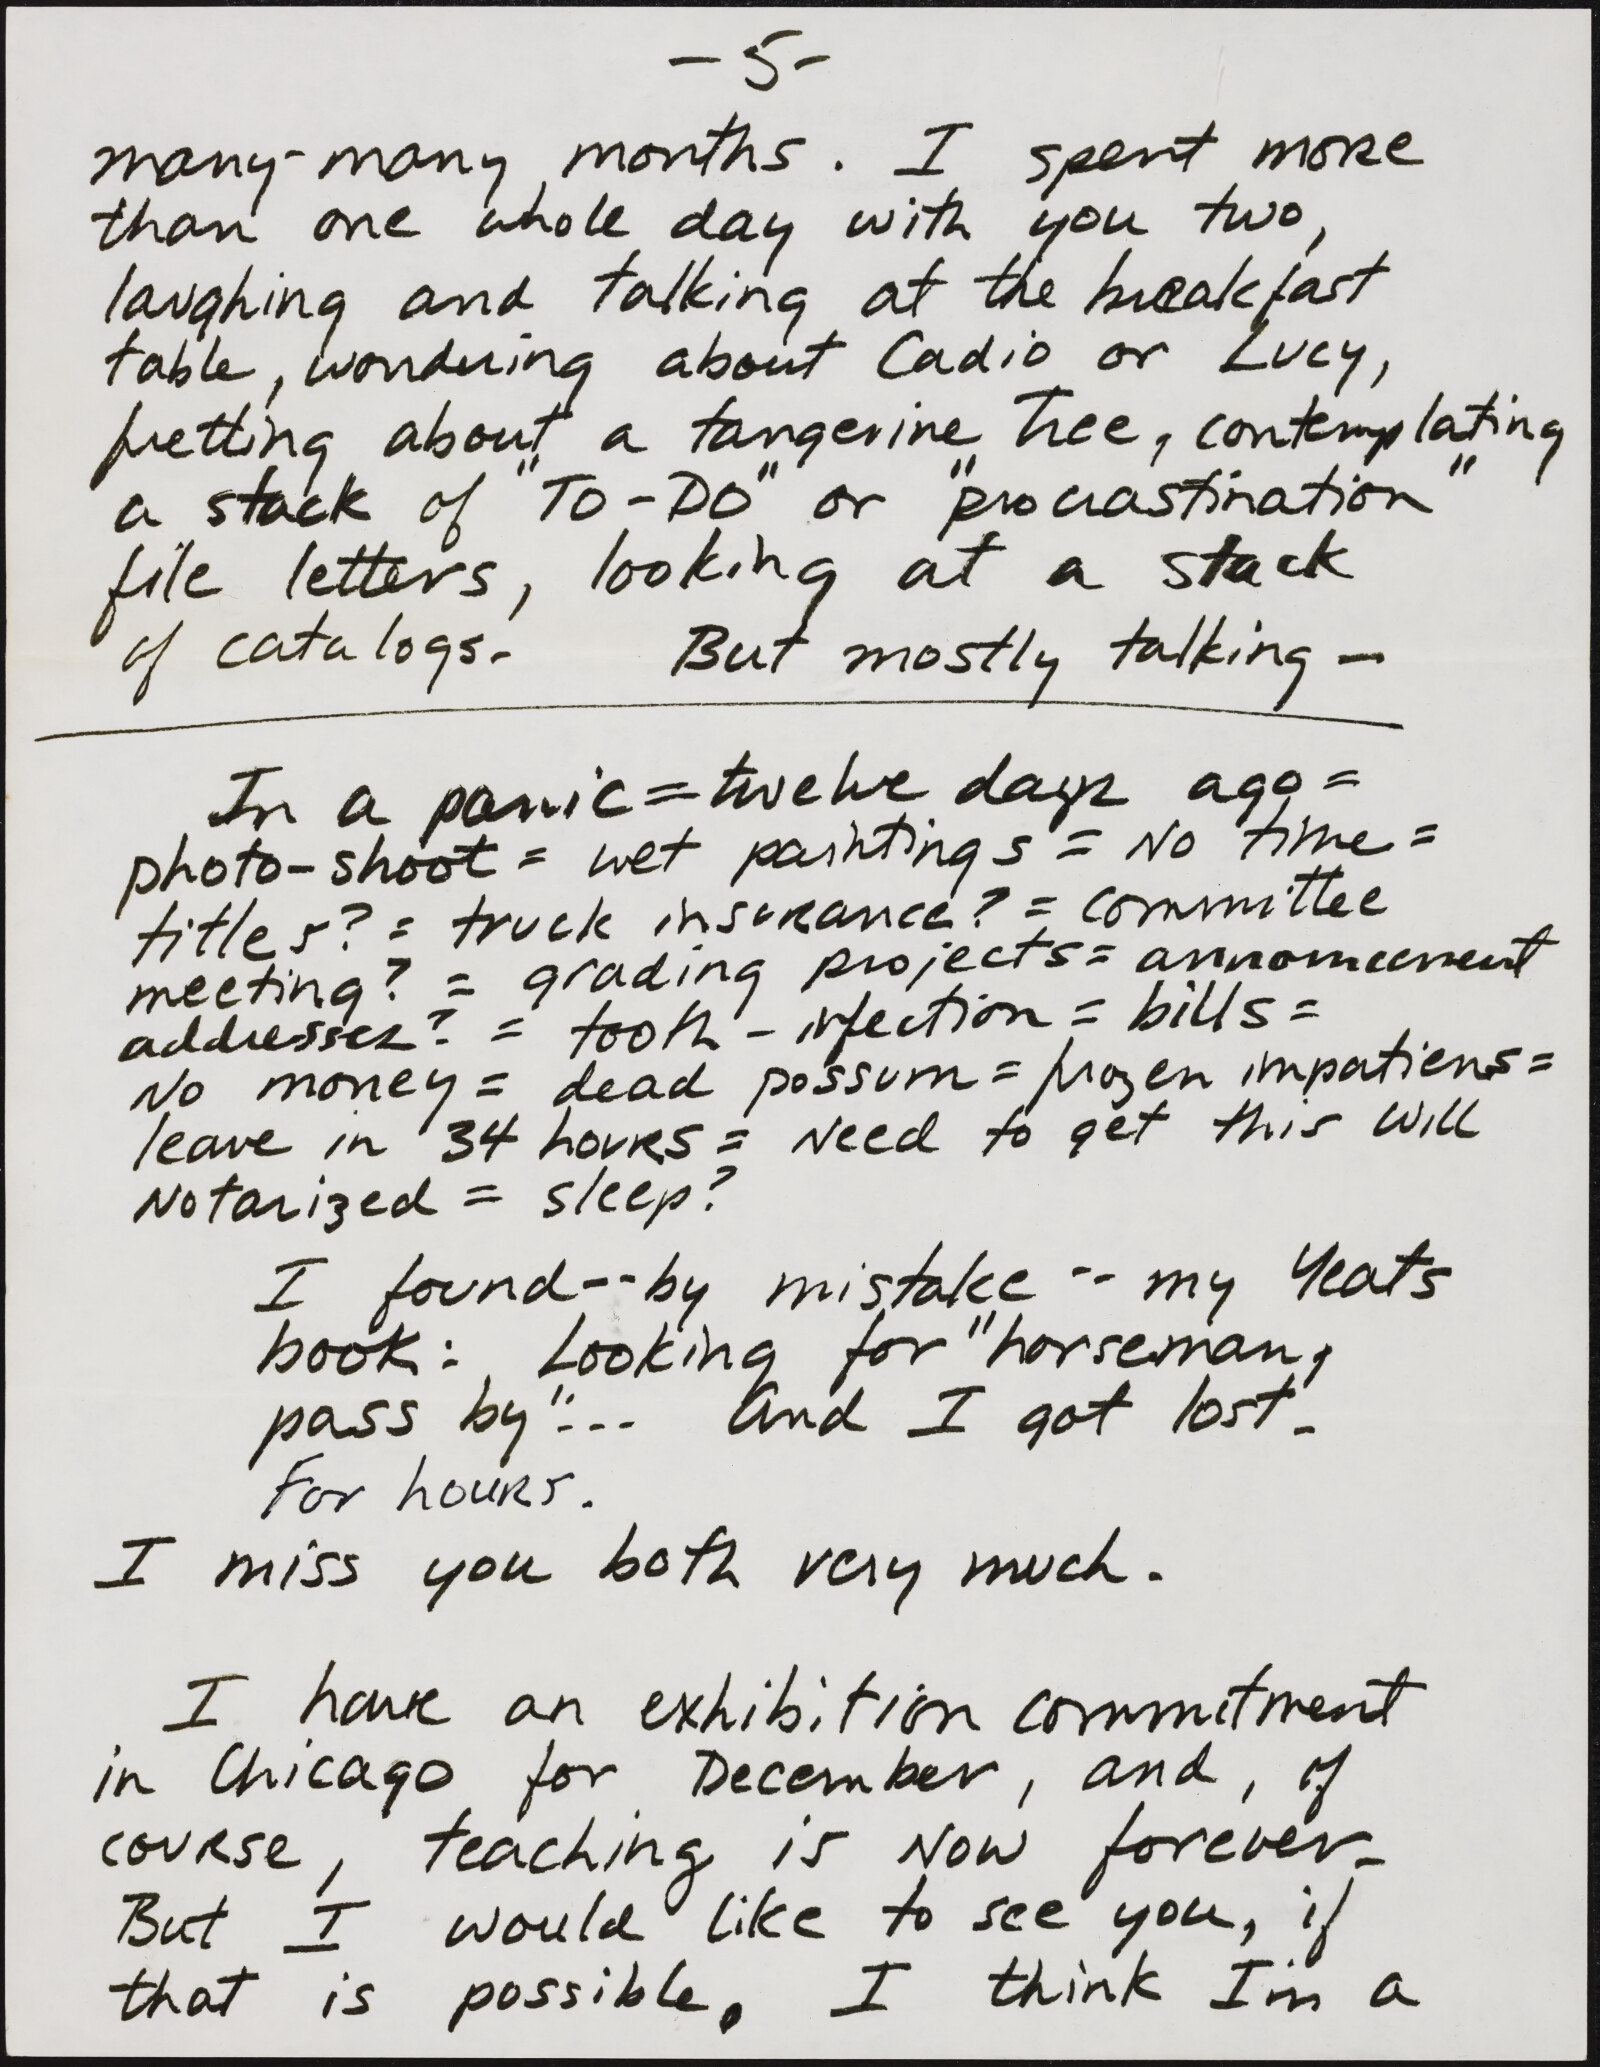 -5-
many-many months. I spent more
than one whole day with you two,
laughing and talking at the breakfast
table, wondering about Cadio or Lucy,
fretting about a tangerine tree, contemplating
a stack of "TO-DO" or "procrastination"
file letters, looking at a stack
of catalogs. But mostly talking -
In a panic = twelve days ago =
photo-shoot = wet paintings = No time =
titles? = truck insurance? = committee
meeting? = grading projects = announcement
addresses? = tooth-infection = bills =
No money = dead possum = frozen impatiens =
leave in 34 hours = Need to get this will
Notarized = sleep?
I found -- by mistake -- my Yeats
book: Looking for "horseman,
pass by"... And I got lost.
For hours.
I miss you both very much.
I have an exhibition commitment
in Chicago for December, and, of
course, teaching is Now forever.
But I would like to see you, if
that is possible. I think I'm a